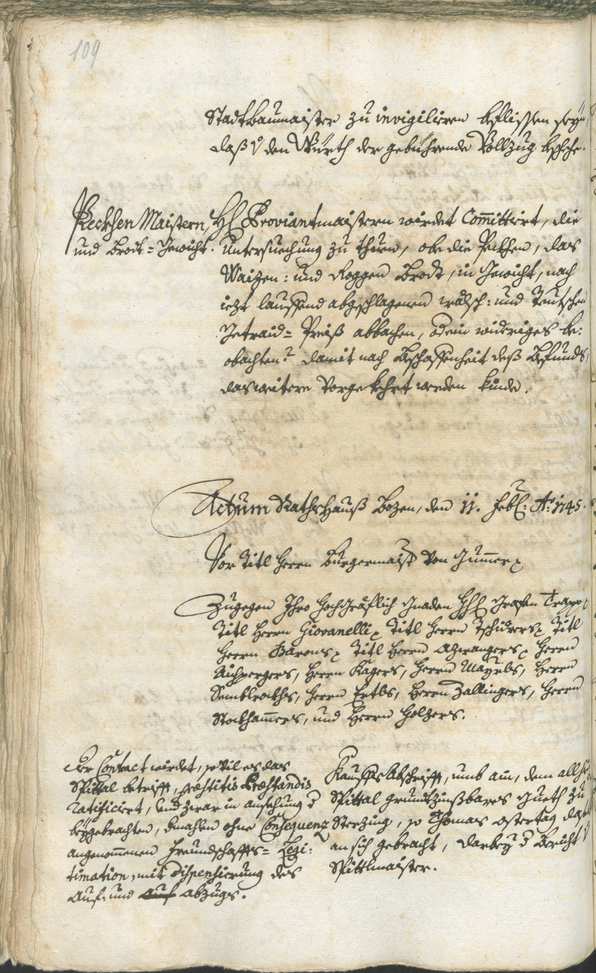 109
Stadtbaumaister zu invigiliren beflissen seyn,
daß den Würth der gebührende Vollzug beschehe.
Peckhen Maistern,
und Brodt-Gewicht.
H: Proviantmaistern würdet Committirt, die
Untersuechung zu thuen, ob die Peckhen, das
Waizen: und Roggen Brodt, in Gewicht, nach
iezt lauffend abgeschlagenen wälsch: und Teutschen
Getraid-Preiß abbachen, oder ein widriges be:
obachten? damit nach Beschaffenheit deß Befunds
das weitere vorgekehrt werden künde.
Actum Rathshauß Bozen, den 11. Feb: Ao: 1745.
Vor Titl Herrn Burgermaister von Gummer
Zugegen Ihro Hochgräflich Gnaden Grafen Trapp
Titl Herrn Giovanelli, Titl Herrn Tschiderer, Titl
Herrn Barons, Titl Herrn Azwangers, Herrn
Aichpergers, Herrn Kagers, Herrn Mayrls, Herrn
Sembleroths, Herrn Ertls, Herrn Zallingers, Herrn
Stockhamers, und Herrn Holzers.
Der Contract würdet, so vil es das
Spittal betrifft, præstitis Præstandis
ratificiert, und zwar in ansechung
beygebrachten, ohne Consequenz
angenommenen Freundschaffts-Legi:
timation, mit Dispensierung des
Auf: und auf abzugs.
Kauffs Abschrifft, umb ain, dem allh:
Spittal grundtzinßbares Guett zu
Sterzing, so Thomas Ostertag
an sich gebracht, darbey Bericht
Spittlmaister.